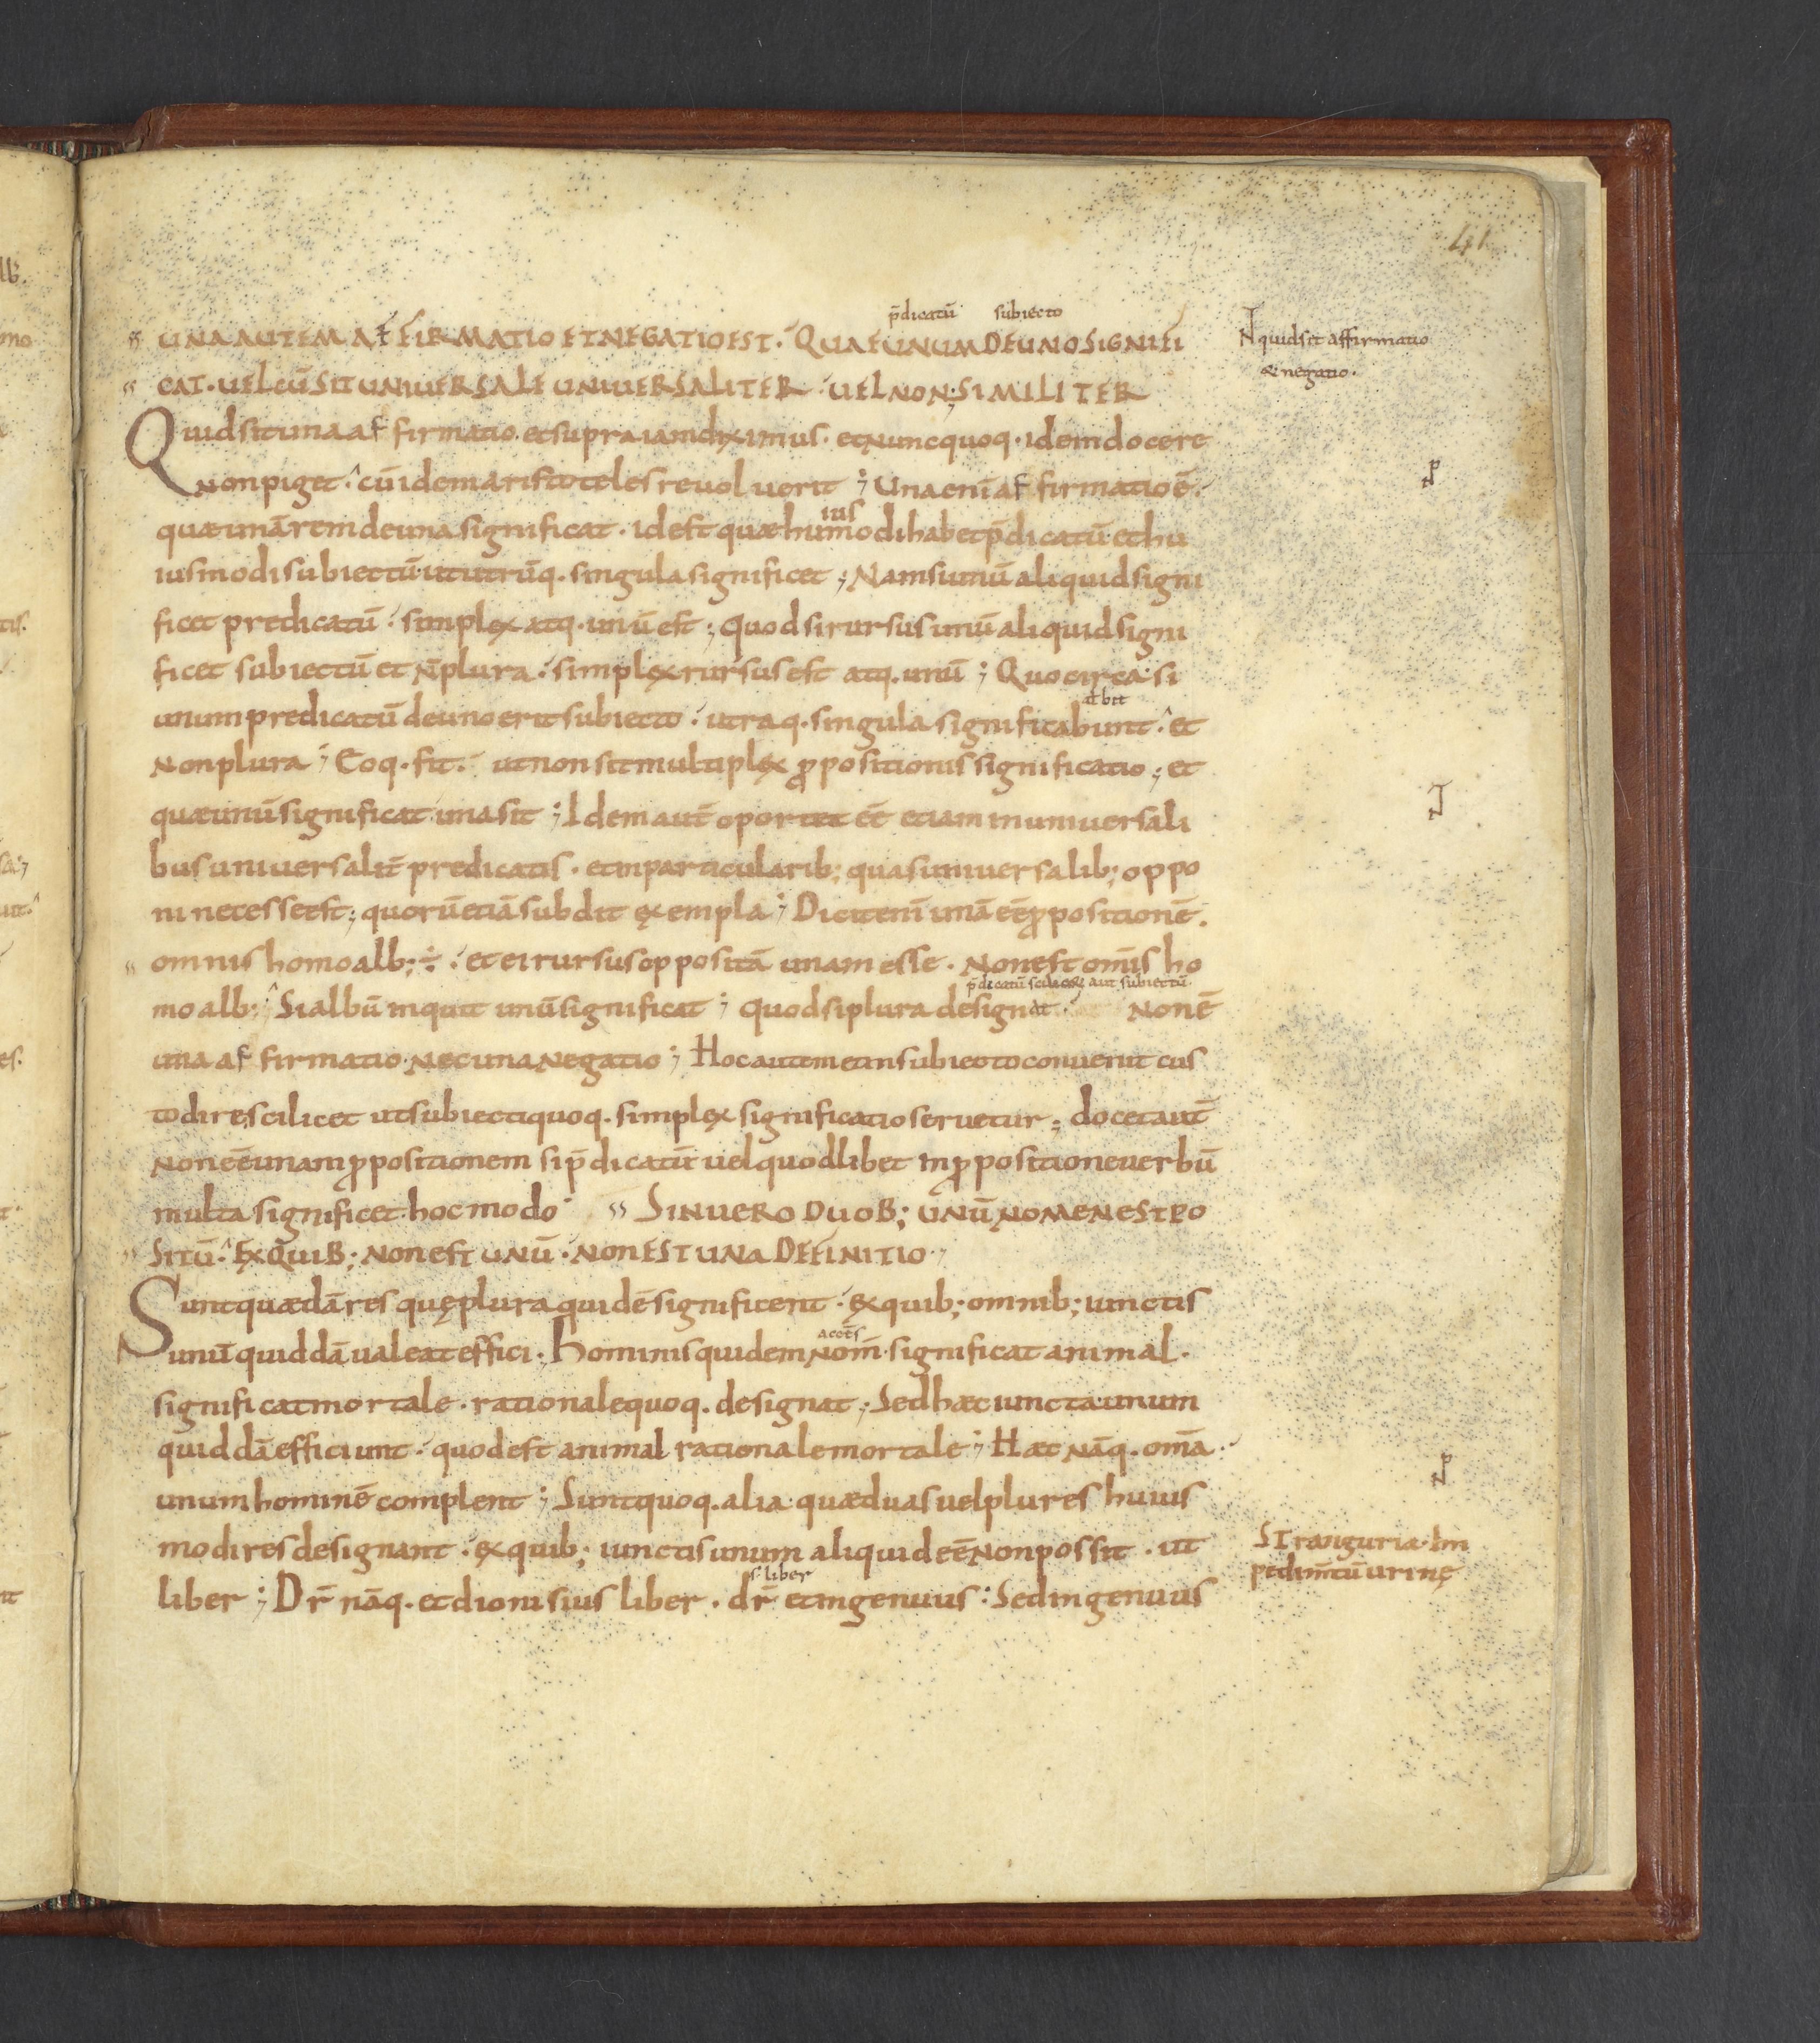 41
p̄dicatū subiecto
UNA AUTEM AFFIRMATIO ET NEGATIO EST· QUAE UNUM DE UNO SIGNIFI
N quid sit affirmatio
CAT· UEL CŪ SIT UNIUERSALE UNIUERSALITER· UEL NON; SIMILITER
& negatio·
Quid sit una affirmatio· et supra iam diximus· et nunc quoq· idem docere
non piget· cū idem aristoteles reuoluerit; Una enī affirmatio ē·
ius
quae unā rem de una significat· id est quae huimodi habet p̄dicatū et hu
iusmodi subiectū ut utrūq· singula significet; Nam si unū aliquid signi
ficet predicatū· simplex atq· unū est; Quod si rursus unū aliquid signi
ficet subiectū et n̄ plura· simplex rursus est atq· unū; Quocirca· si
unum predicatū de uno erit subiecto· utraq· singula significabunt· et
non plura; Eoq· fit· ut non sit multiplex ꝓpositionis significatio; et
quae unū significat una sit; Idem autē oportet eē etiam in uniuersali
bus uniuersalit̄ predicatis· et in particularib; quas uniuersalib; oppo
ni necesse est; quorū etiā subdit exempla; Dicit enī unā eē ꝓpositionē·
omnis homo alb; ÷· et ei rursus oppositā unam esse· Non est om̄is ho
p̄dicatū aut subiectū
mo alb; Si albū inquit unū significat; quod si plura designat· Non ē
una affirmatio· nec una negatio; Hoc autem et in subiecto conuenit cus
todire scilicet ut subiecti quoq· simplex significatio seruetur; docet autē
non eē unam ꝓpositionem si p̄dicatū uel quodlibet in ꝓpositione uerbū
multa significet hoc modo· SIN UERO DUOB; UNŪ NOMEN EST PO
SITŪ· EX QUIB; NON EST UNŪ· NON EST UNA DEFINITIO·
Sunt quaedā res quę plura quidē significent· ex quib; omnib; iunctis
unū quiddā ualeat effici· Hominis quidem nom̄· significat animal·
significat mortale· rationale quoq· designat; Sed haec iuncta unum
quiddā efficiunt· quod est animal rationale mortale; Haec nāq· om̄a·
unum hominē complent; Sunt quoq· alia quae duas uel plures huius
modi res designant· ex quib; iunctis unum aliquid eē non possit· ut
STranguria· Im
pedim̄tū urinę
s· liber
liber; Dr̄ nāq· et dionisius liber· dr̄ et ingenuus· Sed ingenuus